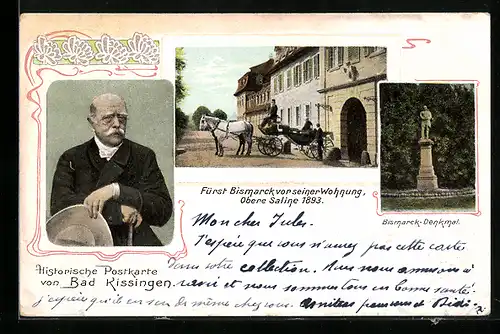 Fürst Bismarck vor seiner Wohnung,
Obere Saline 1893.
Bismarck-Denkmal.
Historische Postkarte
von Bad Kissingen.
Mon cher Jules.
J'espère que vous n'aurez pas cette carte
dans votre collection. Nous nous amusons à
ravir et nous sommes tous en bonne santé
j'espère qu'il en sera de même chez vous.